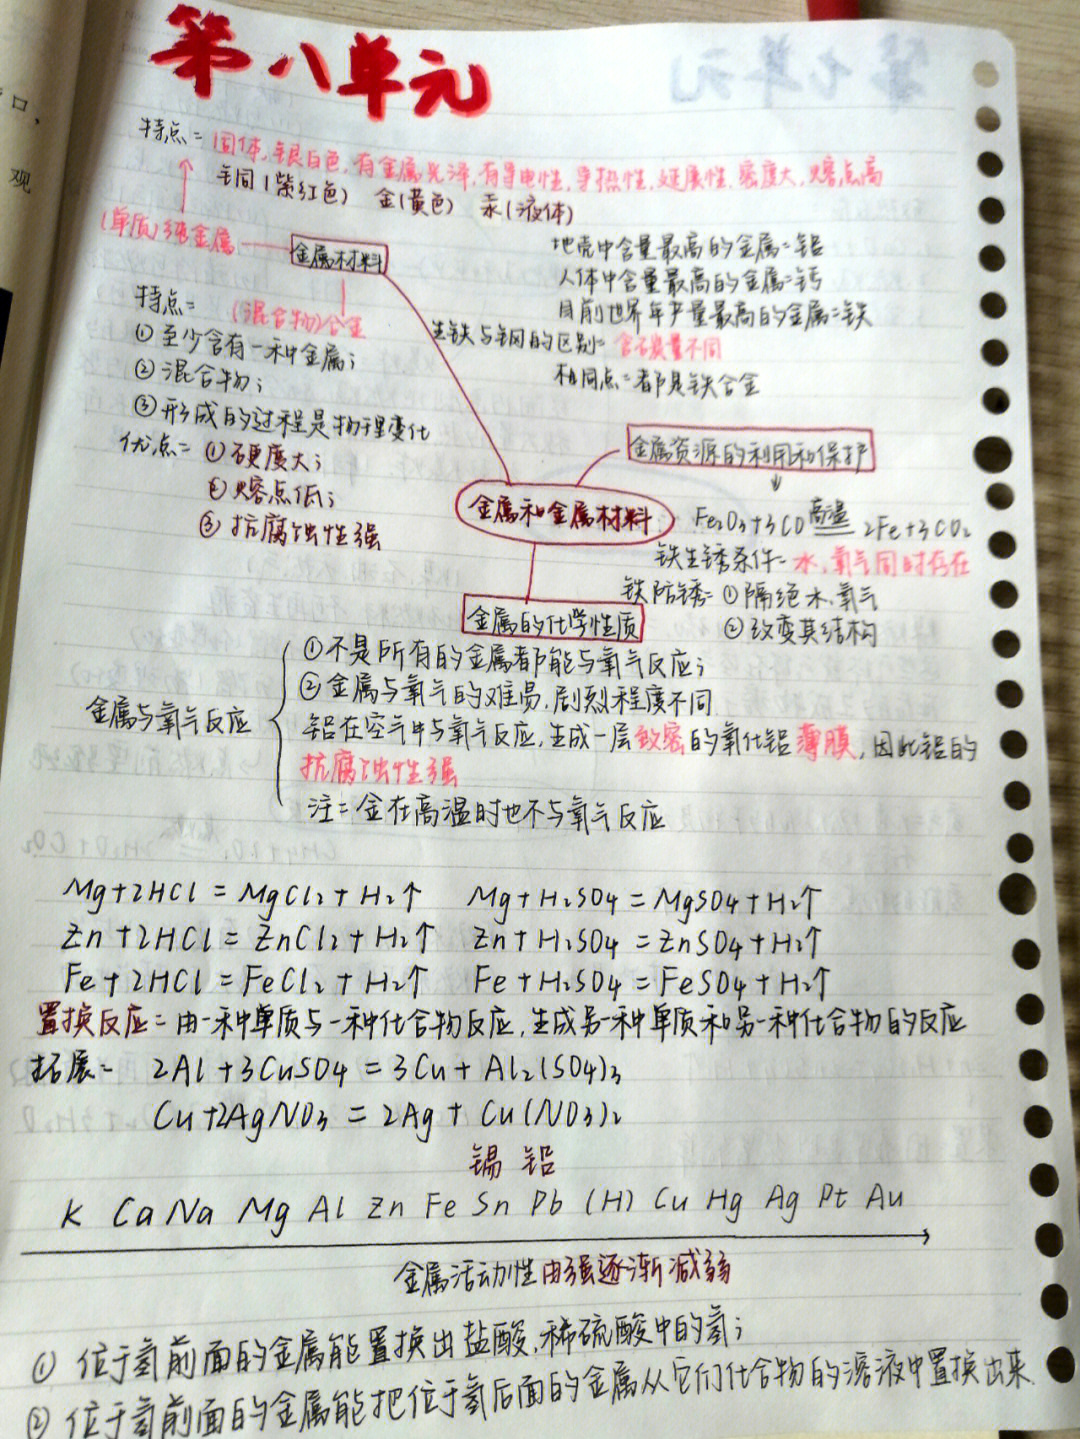 第八单元
特点=固体,银白色,有金属光泽,有导电性,导热性,延展性,密度大,熔点高
铜(紫红色) 金(黄色) 汞(液体)
(单质)纯金属
金属材料
地壳中含量最高的金属=铝
人体中含量最高的金属=钙
目前世界年产量最高的金属=铁
特点=
(混合物)合金
生铁与钢的区别=含碳量不同
①至少含有一种金属;
相同点=都是铁合金
②混合物;
③形成的过程是物理变化
优点= ①硬度大;
②熔点低;
③抗腐蚀性强
金属资源的利用和保护
金属和金属材料
Fe₂O₃+3CO 高温 2Fe+3CO₂
铁生锈条件=水,氧气同时存在
铁防锈=①隔绝水,氧气
②改变其结构
金属的化学性质
金属与氧气反应
①不是所有的金属都能与氧气反应;
②金属与氧气的难易,剧烈程度不同
铝在空气中与氧气反应,生成一层致密的氧化铝薄膜,因此铝的
抗腐蚀性强
注=金在高温时也不与氧气反应
Mg+2HCl=MgCl₂+H₂↑ Mg+H₂SO₄=MgSO₄+H₂↑
Zn+2HCl=ZnCl₂+H₂↑ Zn+H₂SO₄=ZnSO₄+H₂↑
Fe+2HCl=FeCl₂+H₂↑ Fe+H₂SO₄=FeSO₄+H₂↑
置换反应=由一种单质与一种化合物反应,生成另一种单质和另一种化合物的反应
拓展= 2Al+3CuSO₄=3Cu+Al₂(SO₄)₃
Cu+2AgNO₃=2Ag+Cu(NO₃)₂
锡 铅
K Ca Na Mg Al Zn Fe Sn Pb (H) Cu Hg Ag Pt Au
金属活动性由强逐渐减弱
①位于氢前面的金属能置换出盐酸,稀硫酸中的氢;
②位于氢前面的金属能把位于氢后面的金属从它们化合物的溶液中置换出来.
口,
观